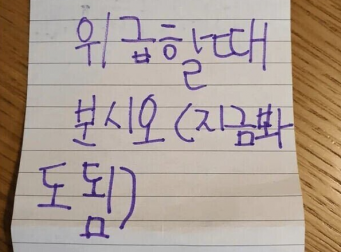 위급할때
본시오(지금봐
도됨)